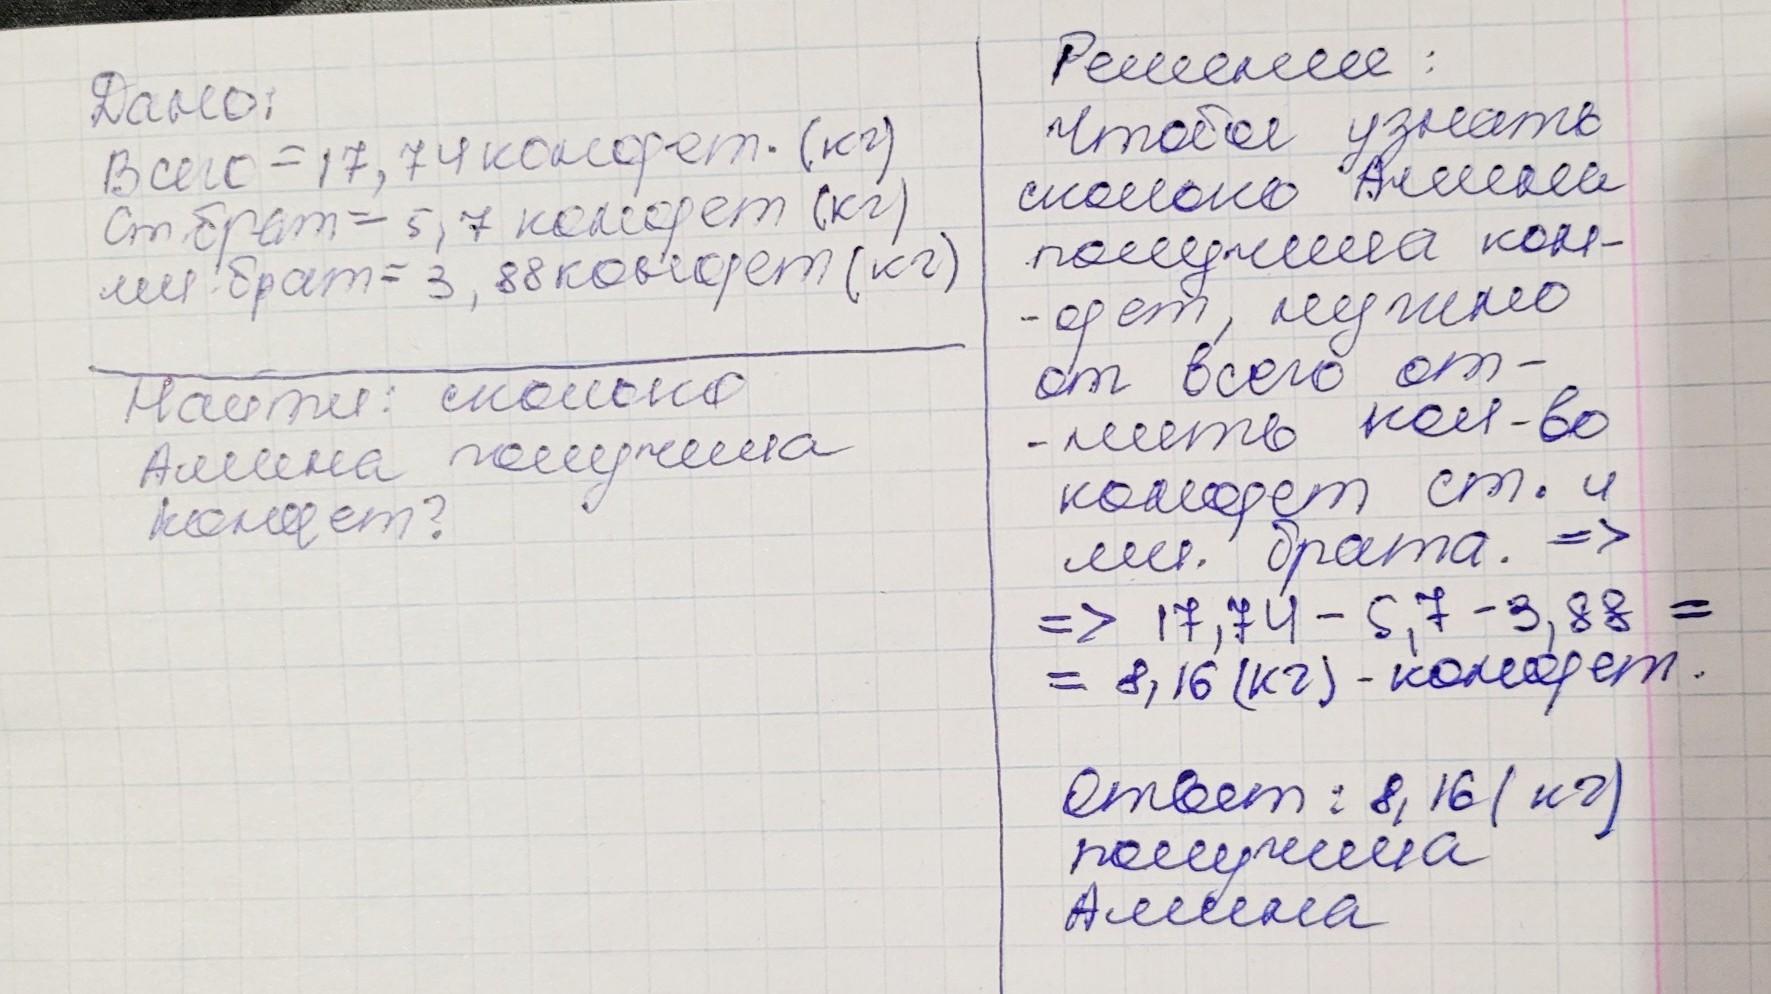 Дано:
Всего = 17,74 конфет. (кг)
Ст брат = 5,7 конфет (кг)
мл. брат = 3,88 конфет (кг)
Найти: сколько
Алина получила
конфет?
Решение:
Чтобы узнать
сколько Алина
получила кон-
-фет, нужно
от всего от-
-нять кол-во
конфет ст. и
мл. брата. =>
=> 17,74 - 5,7 - 3,88 =
= 8,16 (кг) - конфет.
Ответ: 8,16 (кг)
получила
Алина